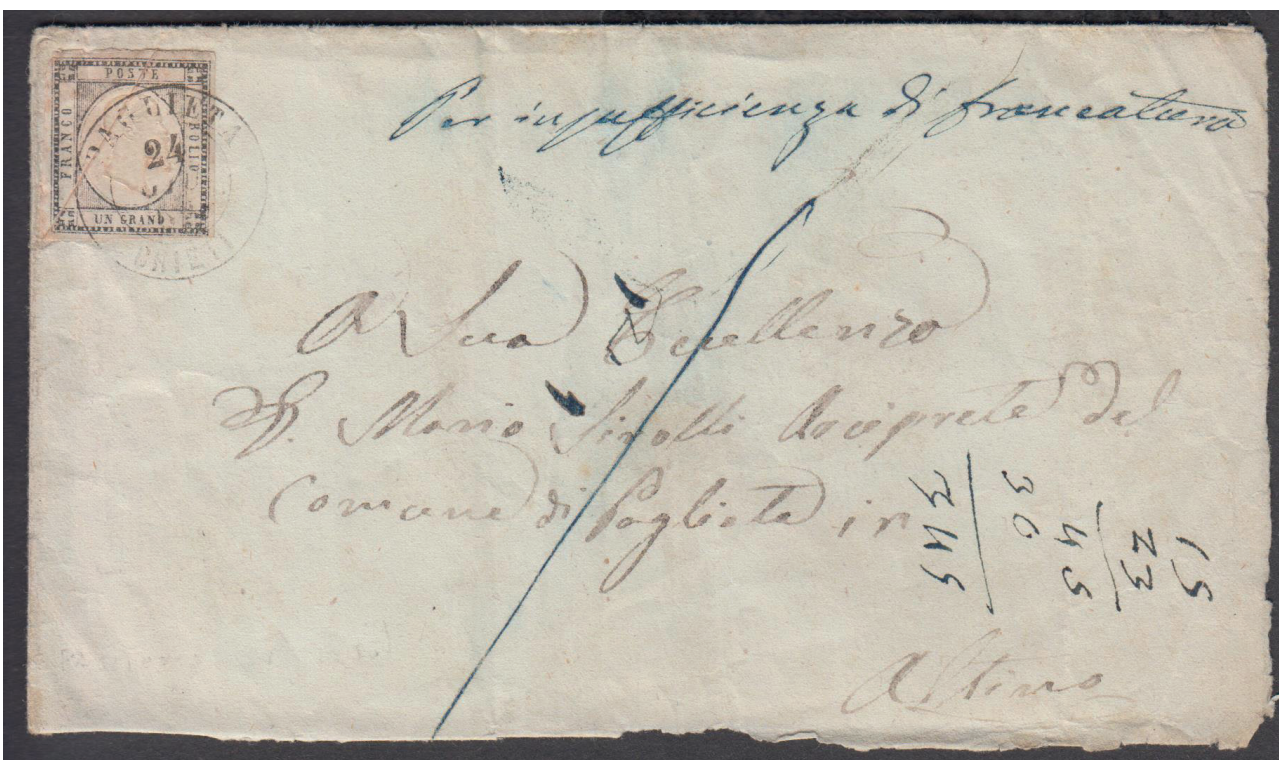 POSTE
FRANCO
BOLLO
UN GRANO
24
CHIETI
Per insufficienza di francatura
A Sua Eccellenza
D. Mario Sirolli Arciprete del
Comune di Paglieta in
Altino
15
23
45
30
345